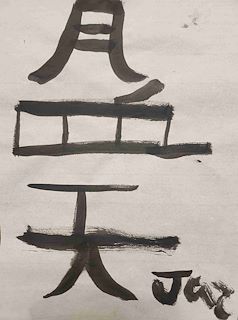 月
血
天
Jay